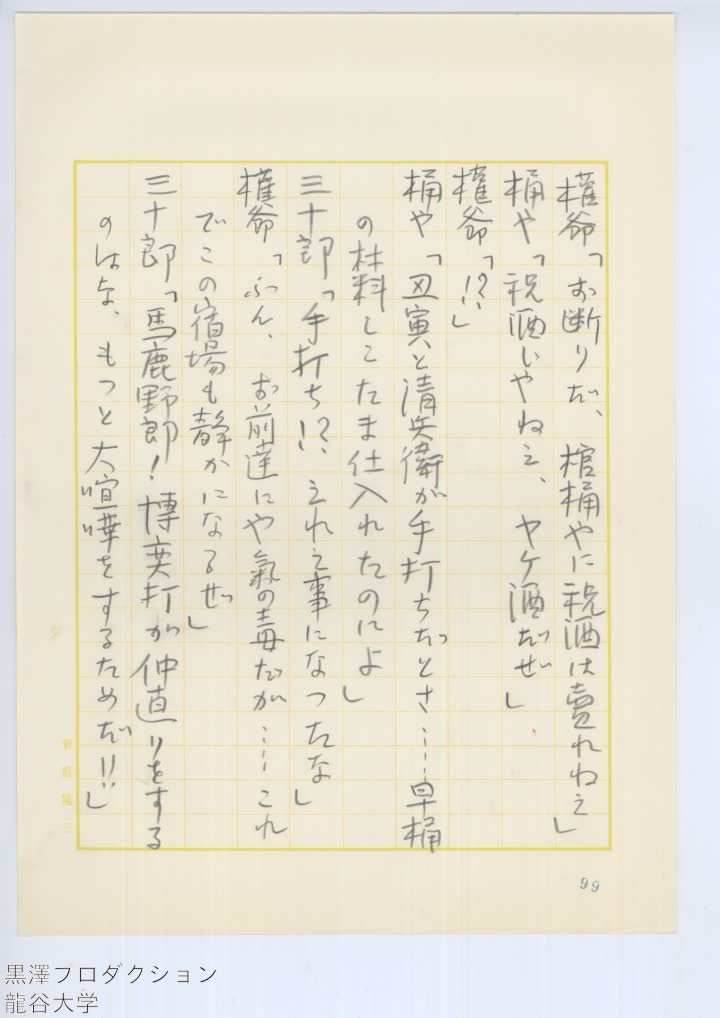 権爺「お断りだ、棺桶やに祝酒は売れねえ」
桶や「祝酒じやねえ、ヤケ酒だぜ」
権爺「!?」
桶や「丑寅と清兵衛が手打ちだとさ……早桶
の材料しこたま仕入れたのによ」
三十郎「手打ち!?、えれえ事になつたな」
権爺「ふん、お前達にや氣の毒だが……これ
でこの宿場も静かになるぜ」
三十郎「馬鹿野郎！博奕打が仲直りをする
のはな、もつと大喧嘩をするためだ!!」
99
黒澤プロダクション
龍谷大学